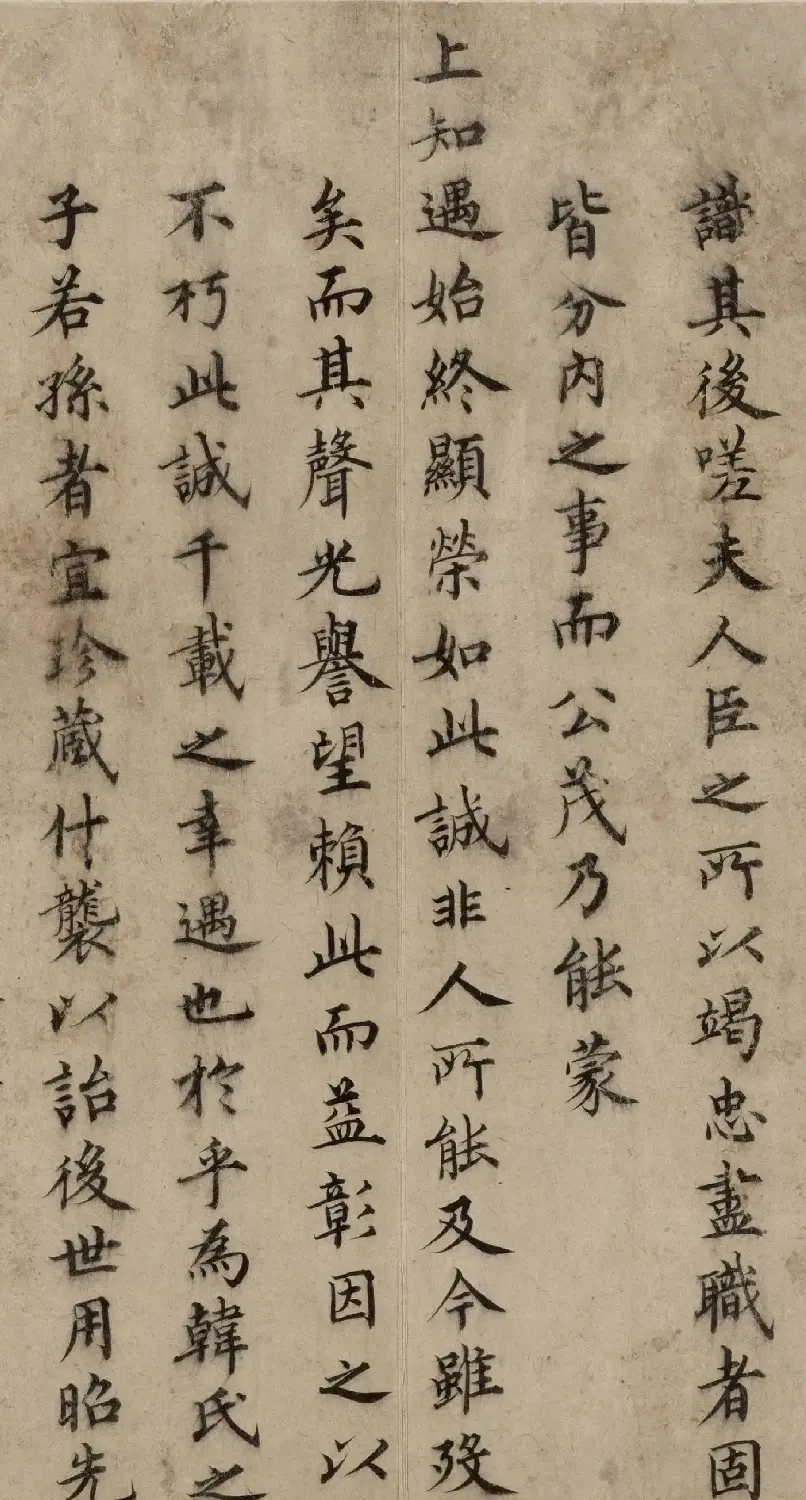 識其後嗟夫人臣之所以竭忠盡職者固
皆分内之事而公茂乃能蒙
上知遇始終顯榮如此誠非人所能及今雖歿
矣而其聲光譽望賴此而益彰因之以
不朽此誠千載之幸遇也於乎為韓氏之
子若孫者宜珍藏什襲以詒後世用昭先